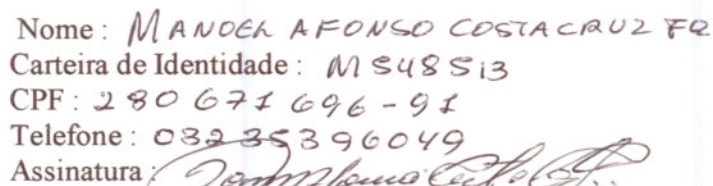 Nome : MANOEL AFONSO COSTA CRUZ FQ
Carteira de Identidade : M 548513
CPF : 280 671 696 - 91
Telefone : 032 35396049
Assinatura :